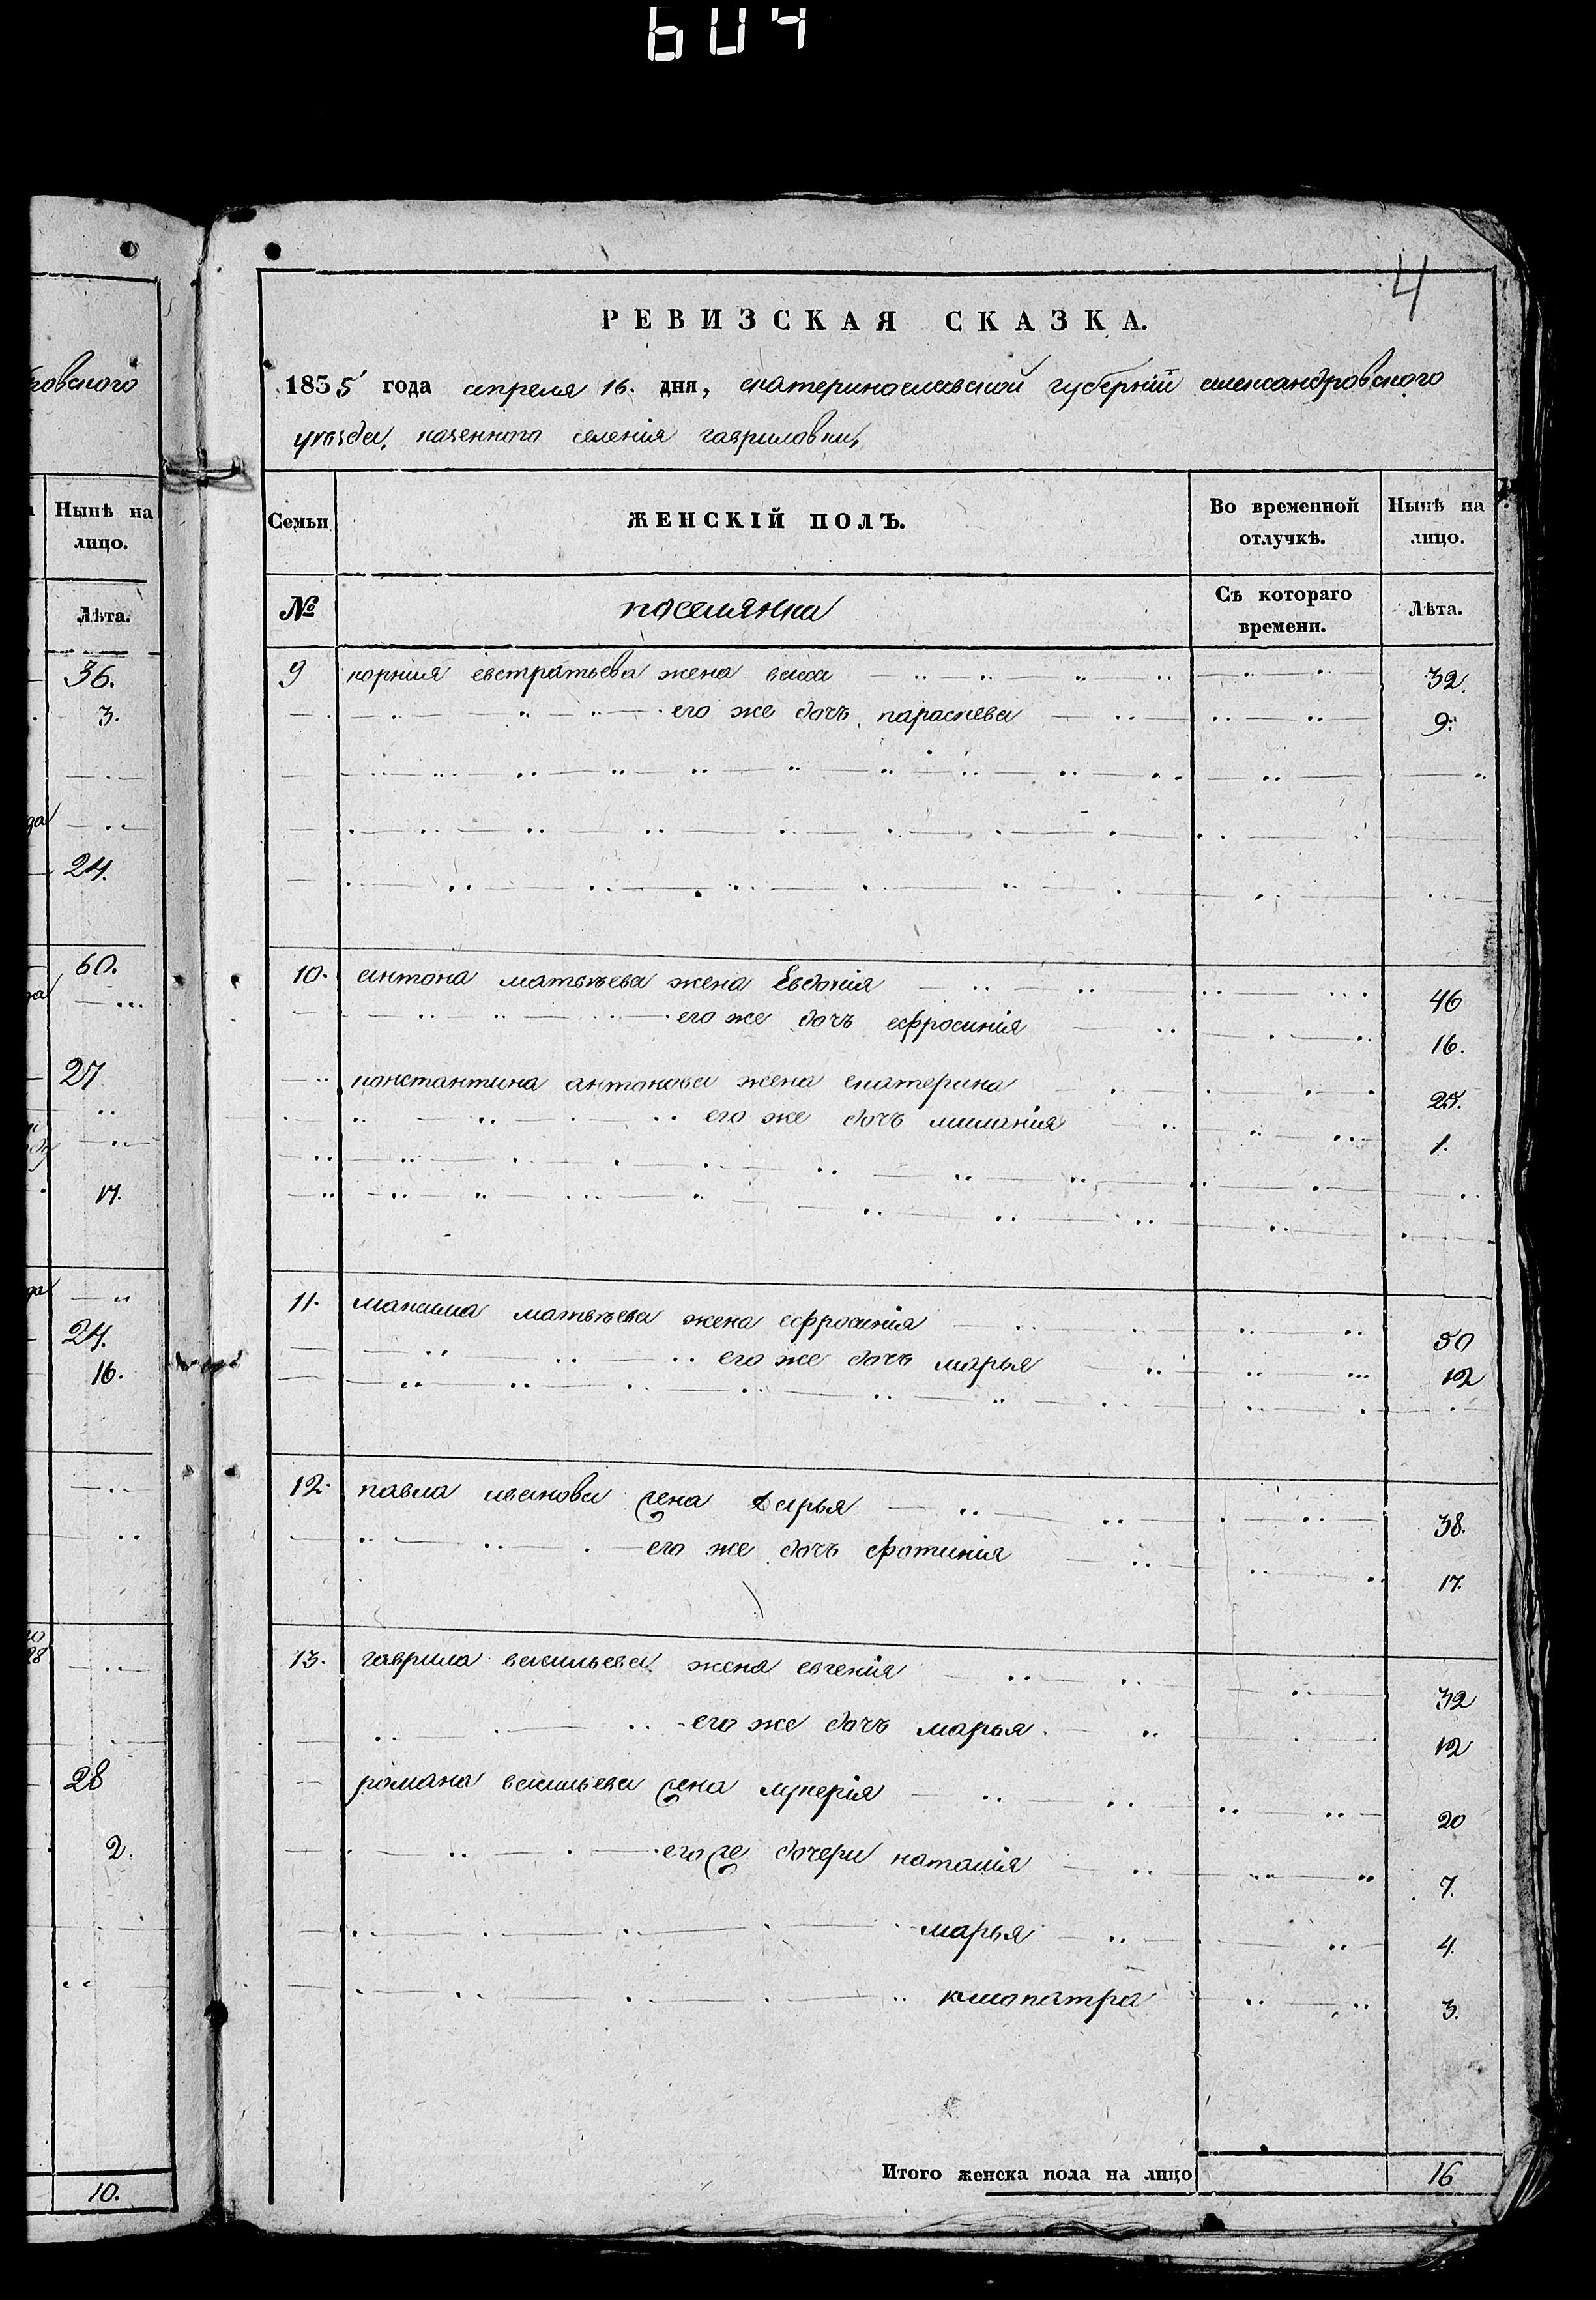 604
4
РЕВИЗСКАЯ СКАЗКА.
1855 года апреля 16. дня, екатеринославской губерніи александровского
уѣзда, казенного селенія гавриловки,
Семьи
ЖЕНСКІЙ ПОЛЪ.
Во временной отлучкѣ.
Нынѣ на лицо.
№
поселянка
Съ котораго времени.
Лѣта.
9 корнѣя евстратьева жена васса 32.
его же дочь параскева 9.
10. антона матвѣева жена Евдокія 46
его же дочь ефросинія 16.
константина антонова жена екатерина 25.
его же дочь миланія 1.
11. максима матвѣева жена ефросинія 50
его же дочь марья 12
12. павла иванова жена дарья 38.
его же дочь фотинія 17.
13. гаврила васильева жена евгенія 32
его же дочь марья 12
романа васильева жена лукерія 20
его же дочери наталія 7.
марья 4.
клиопатра 3.
Итого женска пола на лицо 16
ровского
Нынѣ на
лицо.
Лѣта.
36.
3.
24.
60.
27
17.
24.
16.
28
2.
10.